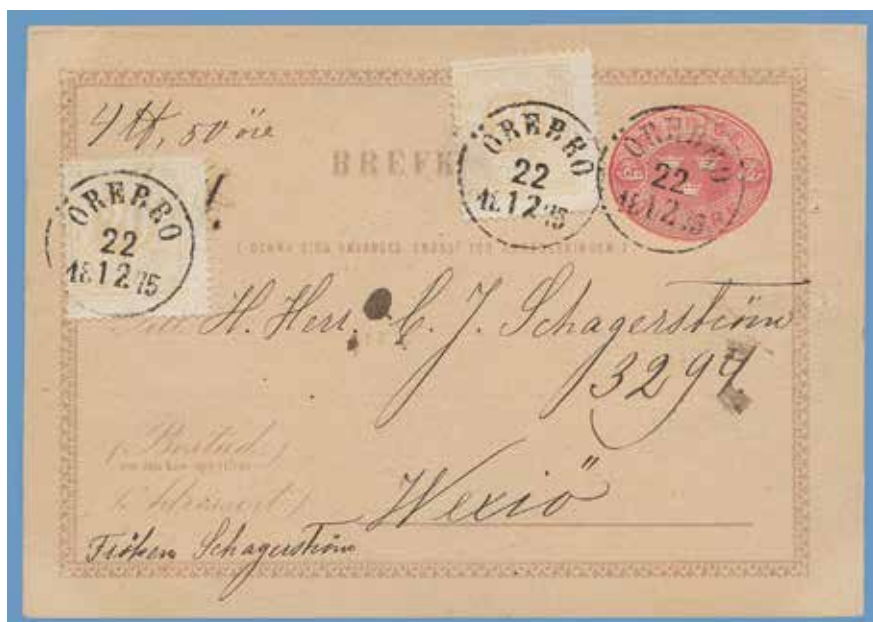 4 ℔, 50 öre
BREFK
ÖREBRO
22
18 12 75
ÖREBRO
22
18 12 75
ÖREBRO
22
18 12 75
Till H. Herr. C. J. Schagerström
3294
(Bostad)
Wexiö
Fröken Schagerström